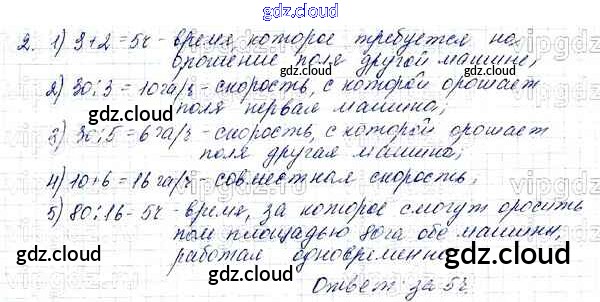 gdz.cloud
2. 1) 3+2=5ч - время которое требуется на
орошение поля другой машине;
gdz.cloud
2) 30:3=10га/ч - скорость, с которой орошает
поля первая машина;
gdz.cloud
3) 30:5=6га/ч - скорость, с которой орошает
поля другая машина;
4) 10+6=16га/ч - совместная скорость;
5) 80:16=5ч - время, за которое смогут оросить
gdz.cloud
поле площадью 80га обе машины,
работая одновременно.
gdz.cloud
gdz.cloud
Ответ: за 5ч.
gdz.cloud